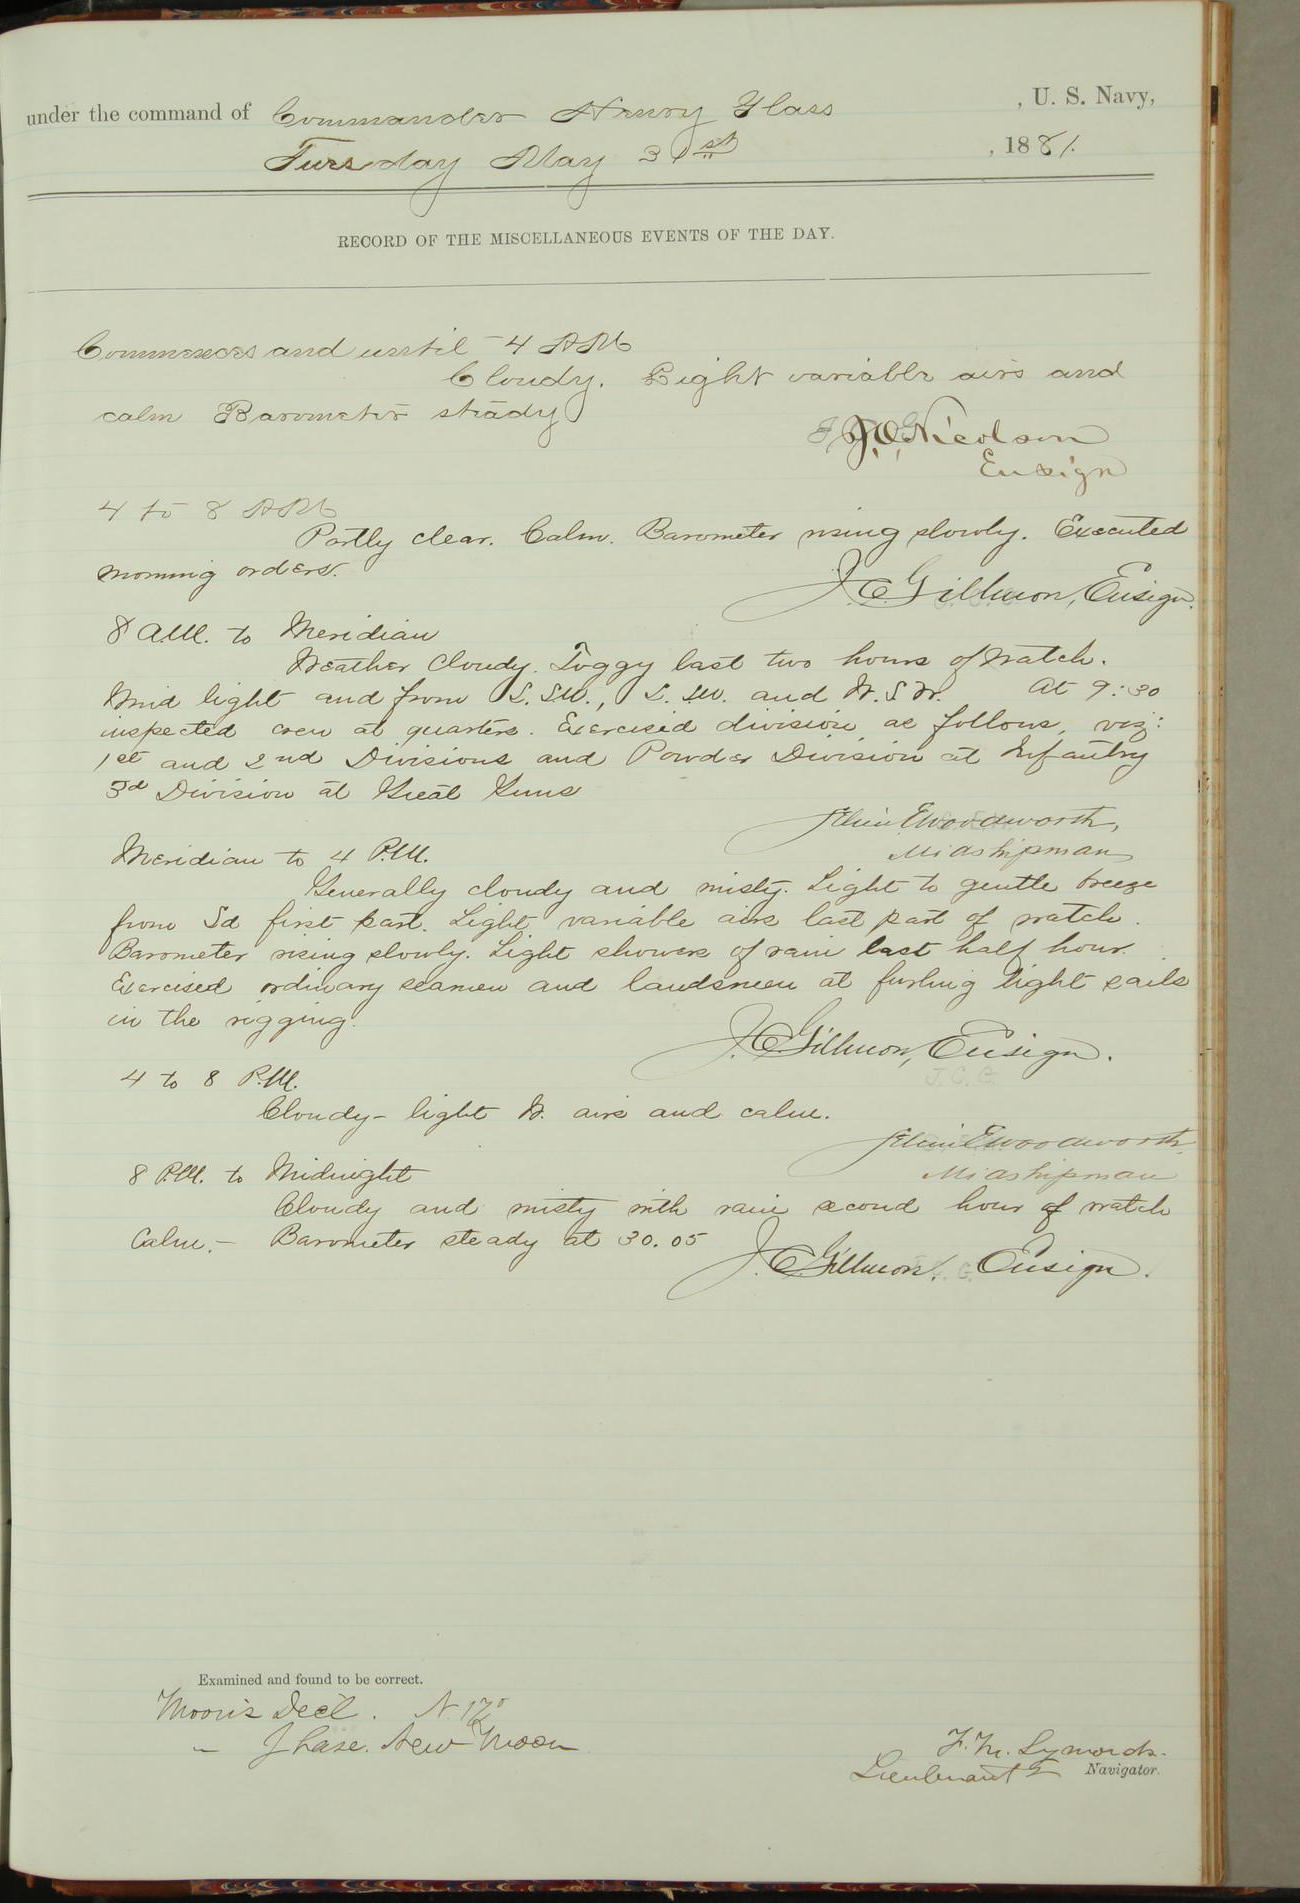 under the command of Commander Henry Glass , U. S. Navy,
Tuesday May 31st , 1881.
RECORD OF THE MISCELLANEOUS EVENTS OF THE DAY.
Commences and until 4 AM
Cloudy. Light variable airs and
calm Barometer steady
Nicolson
Ensign
4 to 8 AM
Partly clear. Calm. Barometer rising slowly. Executed
morning orders.
J. C. Gillmor, Ensign.
8 A.M. to Meridian
Weather cloudy. Foggy last two hours of watch.
Wind light and from S. SW., S. SW. and W. S W. At 9:30
inspected crew at quarters. Exercised division as follows, viz:
1st and 2nd Divisions and Powder Division at Infantry
3d Division at Great Guns
Woodworth,
Midshipman
Meridian to 4 P.M.
Generally cloudy and misty. Light to gentle breeze
from Sd first part. Light variable airs last part of watch.
Barometer rising slowly. Light showers of rain last half hour.
Exercised ordinary seamen and landsmen at furling light sails
in the rigging.
J. C. Gillmor, Ensign.
4 to 8 P.M.
J. C. G.
Cloudy - light W. airs and calm.
Woodworth,
8 P.M. to Midnight
Midshipman
Cloudy and misty with rain second hour of watch
Calm. - Barometer steady at 30.05
J. C. Gillmor, Ensign.
Examined and found to be correct.
Moon's Decl. N. 17°
" Phase. New Moon
F. M. Symonds.
Lieutenant & Navigator.